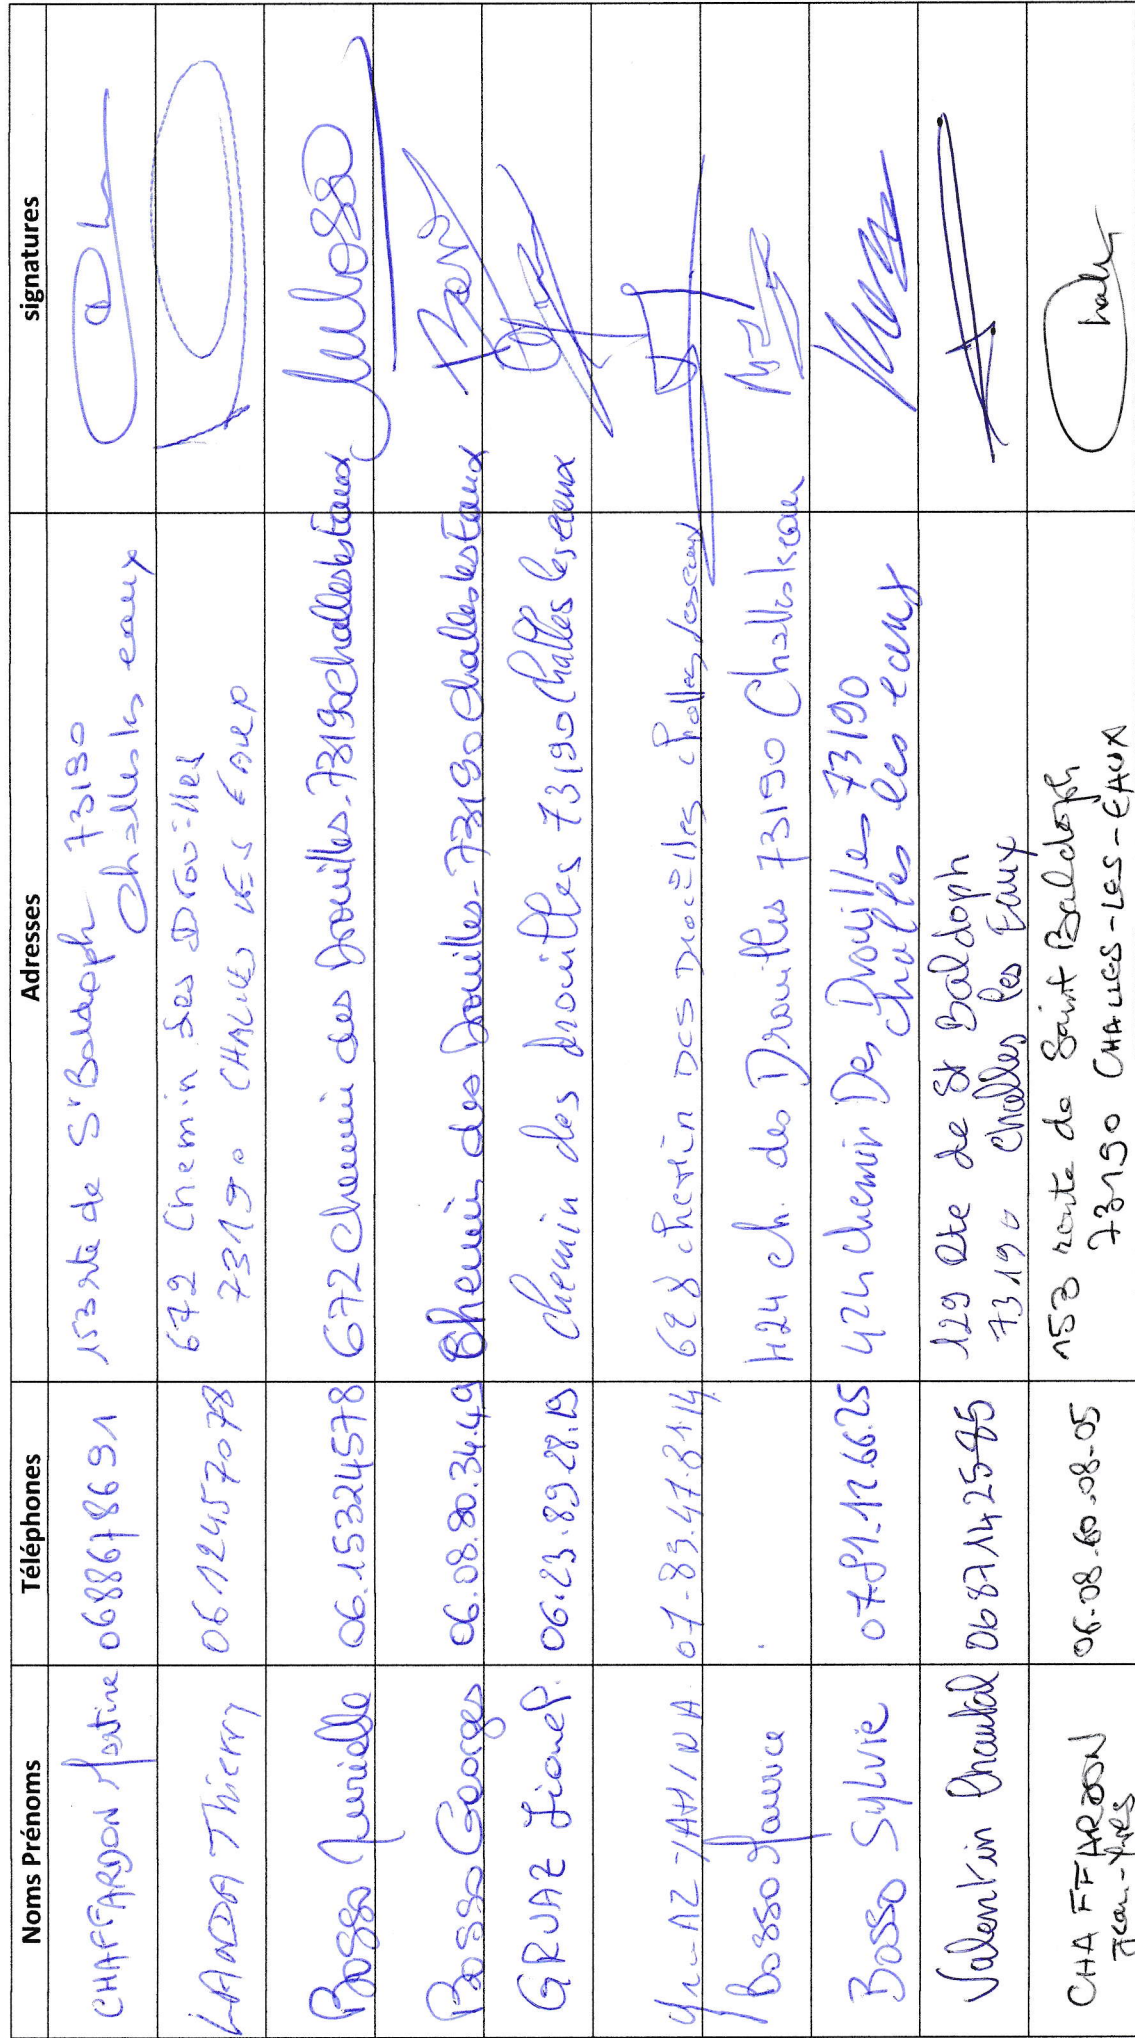 Noms Prénoms Téléphones Adresses signatures
CHAFFARDON Martine 0688678691 153 rte de St Baldoph 73190
Challes les eaux
LANDA Thierry 0612457078 672 Chemin des Drouilles
73190 CHALLES LES EAUX
Bosso Murielle 06.15324578 672 Chemin des Drouilles-73190 Challes les Eaux
Bosso Georges 06.08.80.34.49 Chemin des Drouilles-73190 Challes les Eaux
GRUAZ Lionel 06.23.89.28.19 Chemin des drouilles 73190 Challes les eaux
07-83.47.81.14 628 chemin DES DROUILLES challes les eaux
Bosso Maurice 424 ch. des Drouilles 73190 Challes les eaux
Bosso Sylvie 0781.12.66.25 424 chemin Des Drouilles 73190
challes les eaux
Valentin Chantal 0687142585 129 Rte de St Baldoph
73190 Challes les Eaux
CHAFFARDON
Jean-Yves 06.08.60.08-05 153 route de Saint Baldoph
73190 CHALLES-LES-EAUX